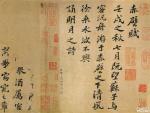 赤壁賦
壬戌之秋七月既望蘇子與
客泛舟遊於赤壁之下清風
徐來水波不興
舉酒屬客
誦明月之詩
歌窈窕之章